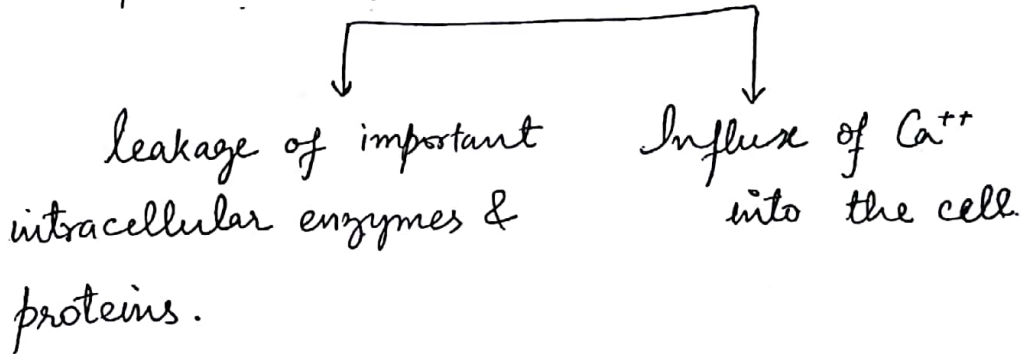 leakage of important
intracellular enzymes &
proteins.
Influx of Ca⁺⁺
into the cell.